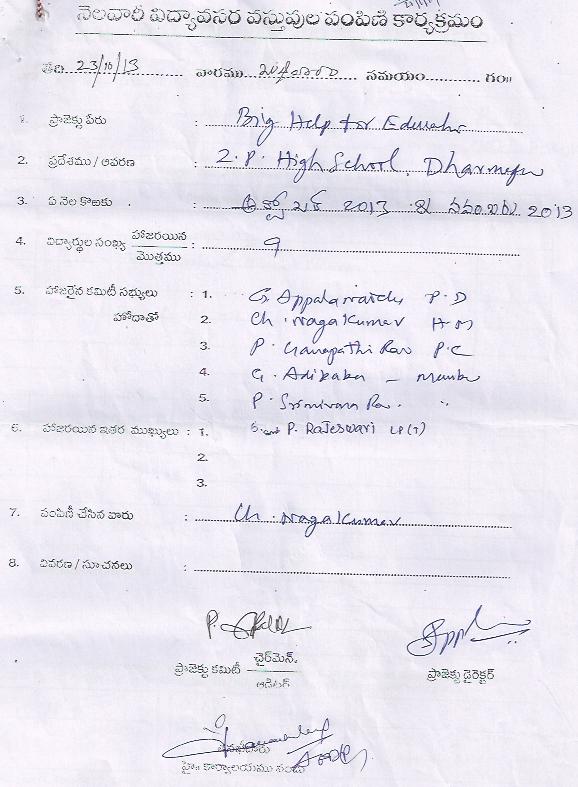 నెలవారీ విద్యావసర వస్తువుల పంపిణి కార్యక్రమం
తేది. 23/10/13 వారము సమయం గం॥
1. ప్రాజెక్టు పేరు : Big Help for Educatn
2. ప్రదేశము / ఆవరణ : Z.P. High School, Dharmapu
3. ఏ నెల కొఱకు : అక్టోబర్ 2013 & నవంబర్ 2013
4. విద్యార్థుల సంఖ్య హాజరయిన / మొత్తము : 9
5. హాజరైన కమిటీ సభ్యులు : 1. G. Appalanaidu P.D
హోదాతో 2. Ch. Nagakumar H.M
3. P. Ganapathi Rao P.C
4. G. Adibabu - Member
5. P. Srinivasa Rao. "
6. హాజరయిన ఇతర ముఖ్యులు : 1. P. Rajeswari LP(T)
2.
3.
7. పంపిణీ చేసిన వారు : Ch. Nagakumar
8. వివరణ / సూచనలు :
ప్రాజెక్టు కమిటీ ఛైర్‌మెన్. / ఆడిటర్
ప్రాజెక్టు డైరెక్టర్
హై॥ కార్యాలయము నందు